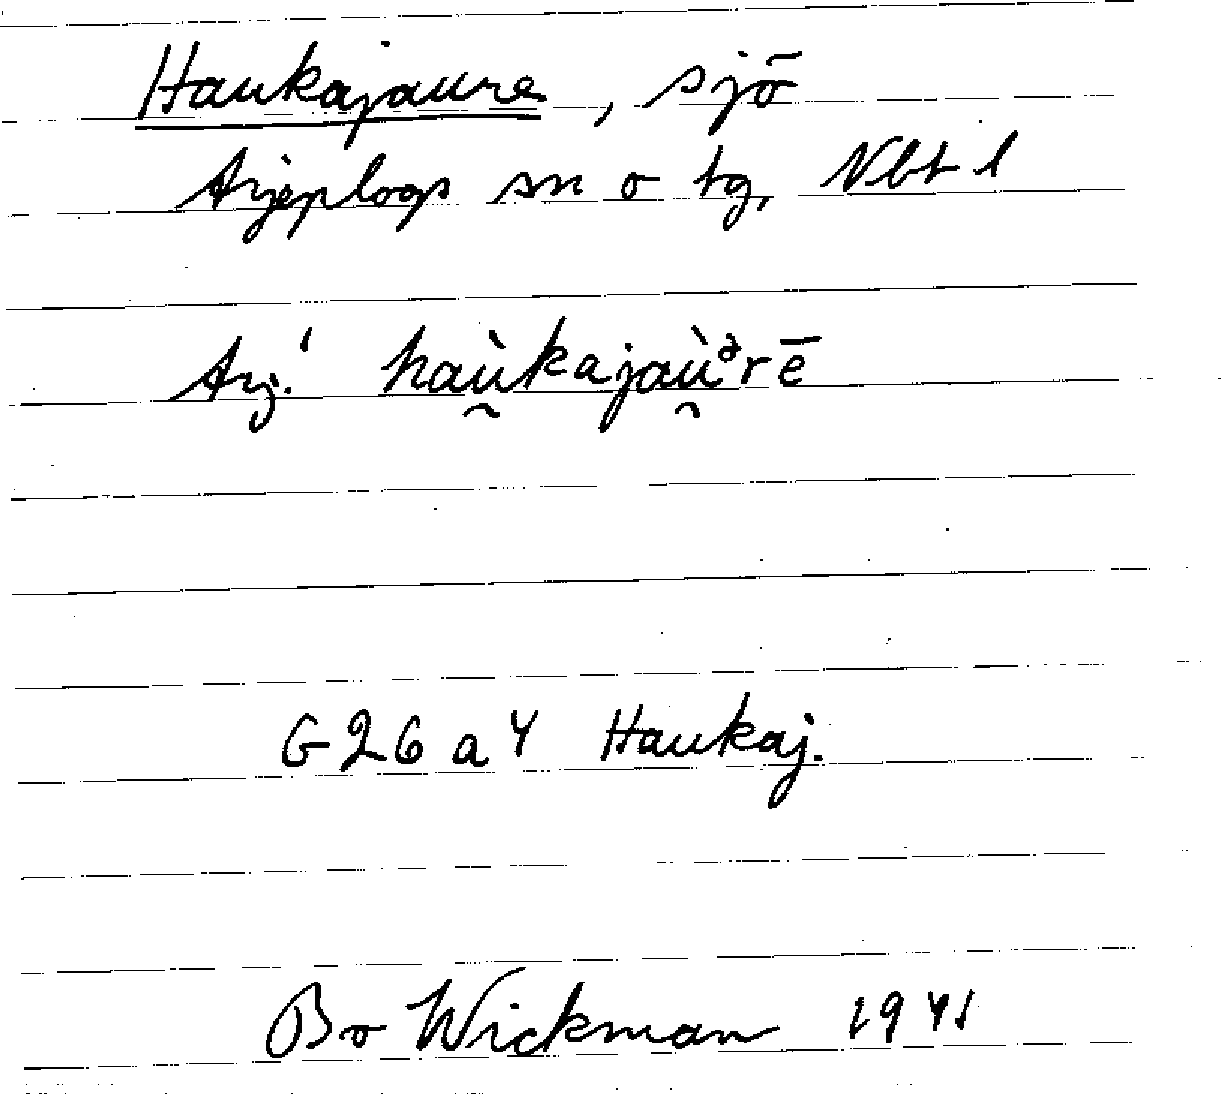 Haukajaure, sjö
Arjeplogs sn o tg, Nbt l
Arj.' haù̯kajaù̯ᵊrē
G 26 a Y Haukaj.
Bo Wickman 1941